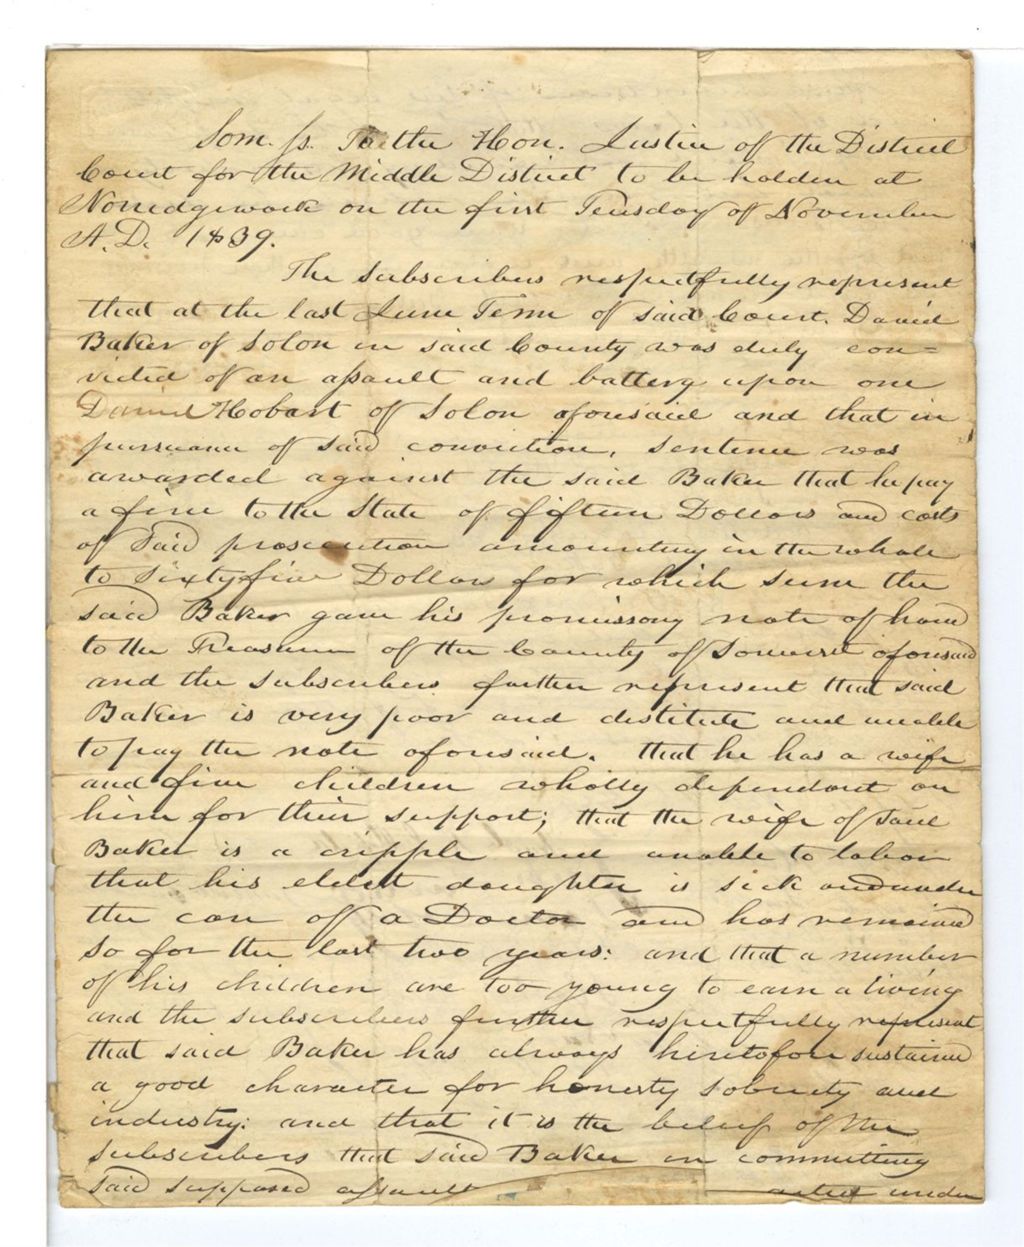 Som. ss. To the Hon. Justice of the District
Court for the Middle District to be holden at
Norridgewock on the first Tuesday of November
A.D. 1839.
The subscribers respectfully represent
that at the last June Term of said Court. David
Baker of Solon in said County was duly con=
victed of an assault and battery upon one
Daniel Hobart of Solon aforesaid and that in
pursuance of said conviction, sentence was
awarded against the said Baker that he pay
a fine to the State of fifteen Dollars and costs
of said prosecution amounting in the whole
to Sixty five Dollars for which sum the
said Baker gave his promissory note of hand
to the Treasurer of the County of Somerset aforesaid
and the subscribers further represent that said
Baker is very poor and destitute and unable
to pay the note aforesaid. that he has a wife
and five children wholly dependant on
him for their support; that the wife of said
Baker is a cripple and unable to labor
that his eldest daughter is sick and under
the care of a Doctor and has remained
so for the last two years: and that a number
of his children are too young to earn a living
and the subscribers further respectfully represent
that said Baker has always heretofore sustained
a good character for honesty sobriety and
industry: and that it is the belief of the
subscribers that said Baker in committing
said supposed assault acted under